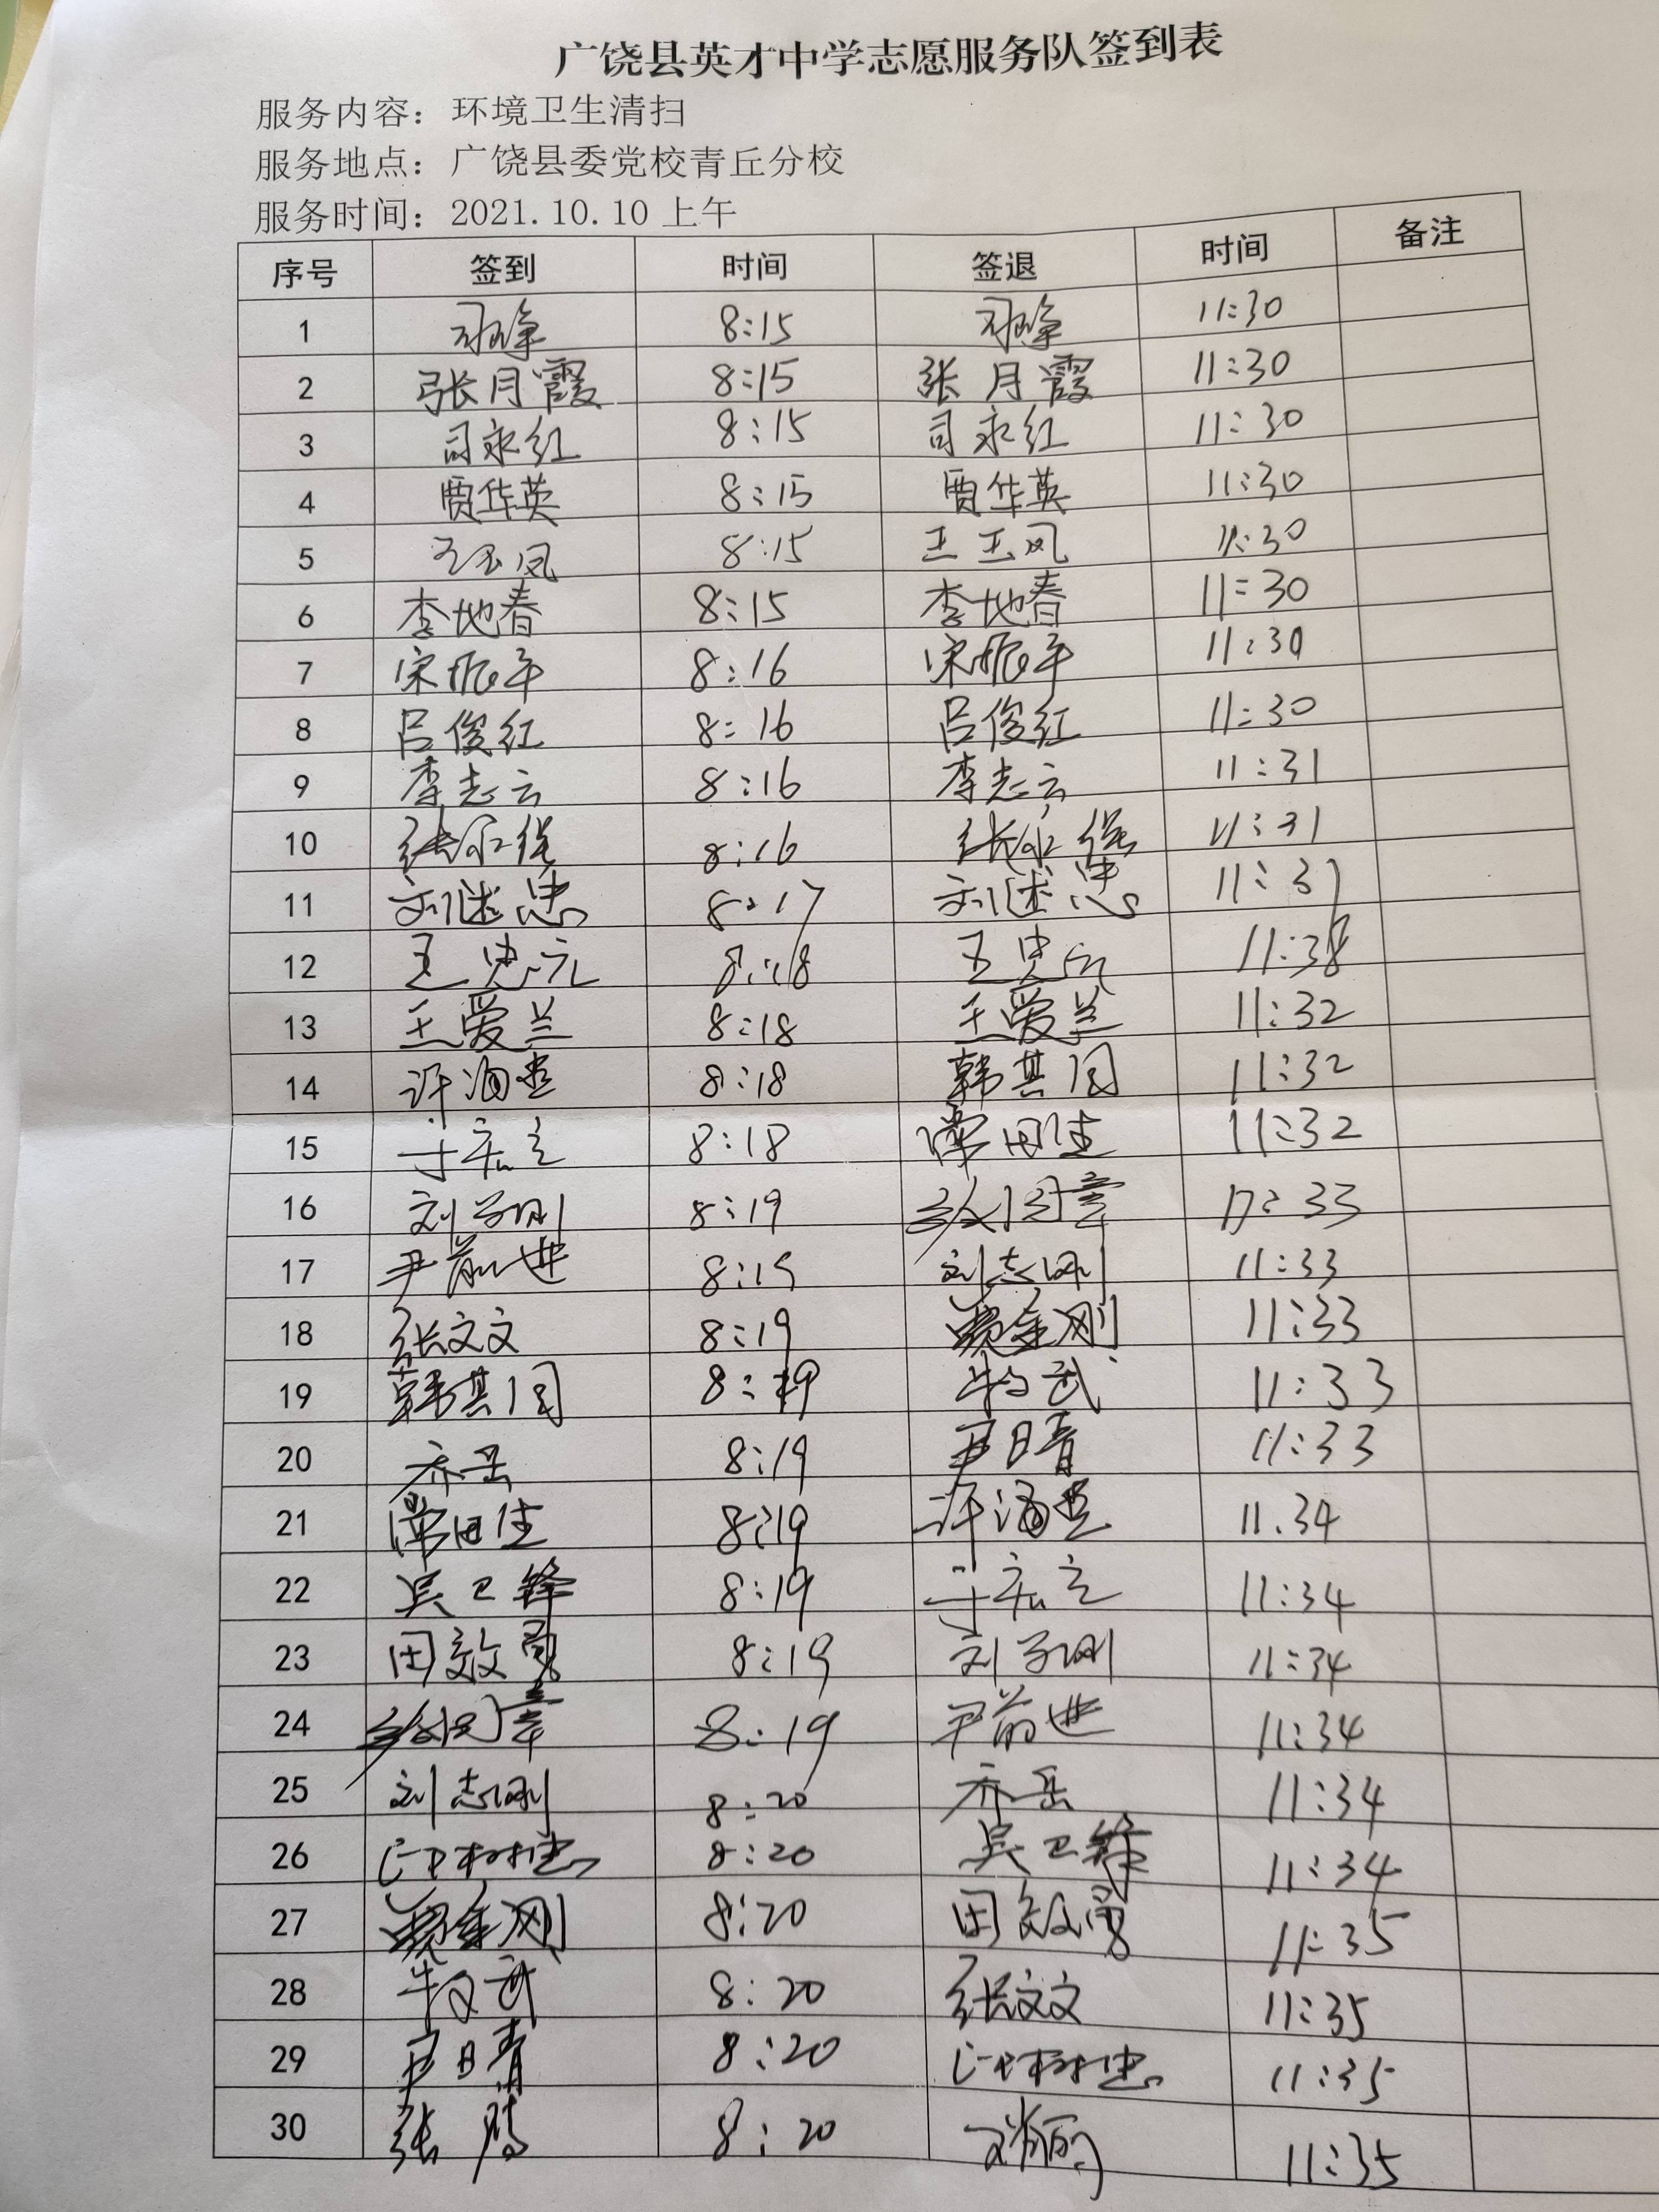 广饶县英才中学志愿服务队签到表
服务内容：环境卫生清扫
服务地点：广饶县委党校青丘分校
服务时间：2021.10.10上午
序号 签到 时间 签退 时间 备注
1 8:15 11:30
2 张月霞 8:15 张月霞 11:30
3 司永红 8:15 司永红 11:30
4 贾华英 8:15 贾华英 11:30
5 王玉凤 8:15 王玉凤 11:30
6 李地春 8:15 李地春 11:30
7 宋振平 8:16 宋振平 11:30
8 吕俊红 8:16 吕俊红 11:30
9 李志云 8:16 李志云 11:31
10 8:16 11:31
11 8:17 11:31
12 王忠元 8:18 王忠元 11:38
13 王爱兰 8:18 王爱兰 11:32
14 8:18 韩其国 11:32
15 8:18 11:32
16 8:19 11:33
17 尹前进 8:19 刘志刚 11:33
18 张文文 8:19 11:33
19 韩其国 8:19 11:33
20 乔岳 8:19 尹日青 11:33
21 8:19 11.34
22 吴卫锋 8:19 11:34
23 田效勇 8:19 11:34
24 8:19 尹前进 11:34
25 刘志刚 8:20 乔岳 11:34
26 8:20 吴卫锋 11:34
27 8:20 田效勇 11:35
28 8:20 张文文 11:35
29 尹日青 8:20 11:35
30 张腾 8:20 11:35